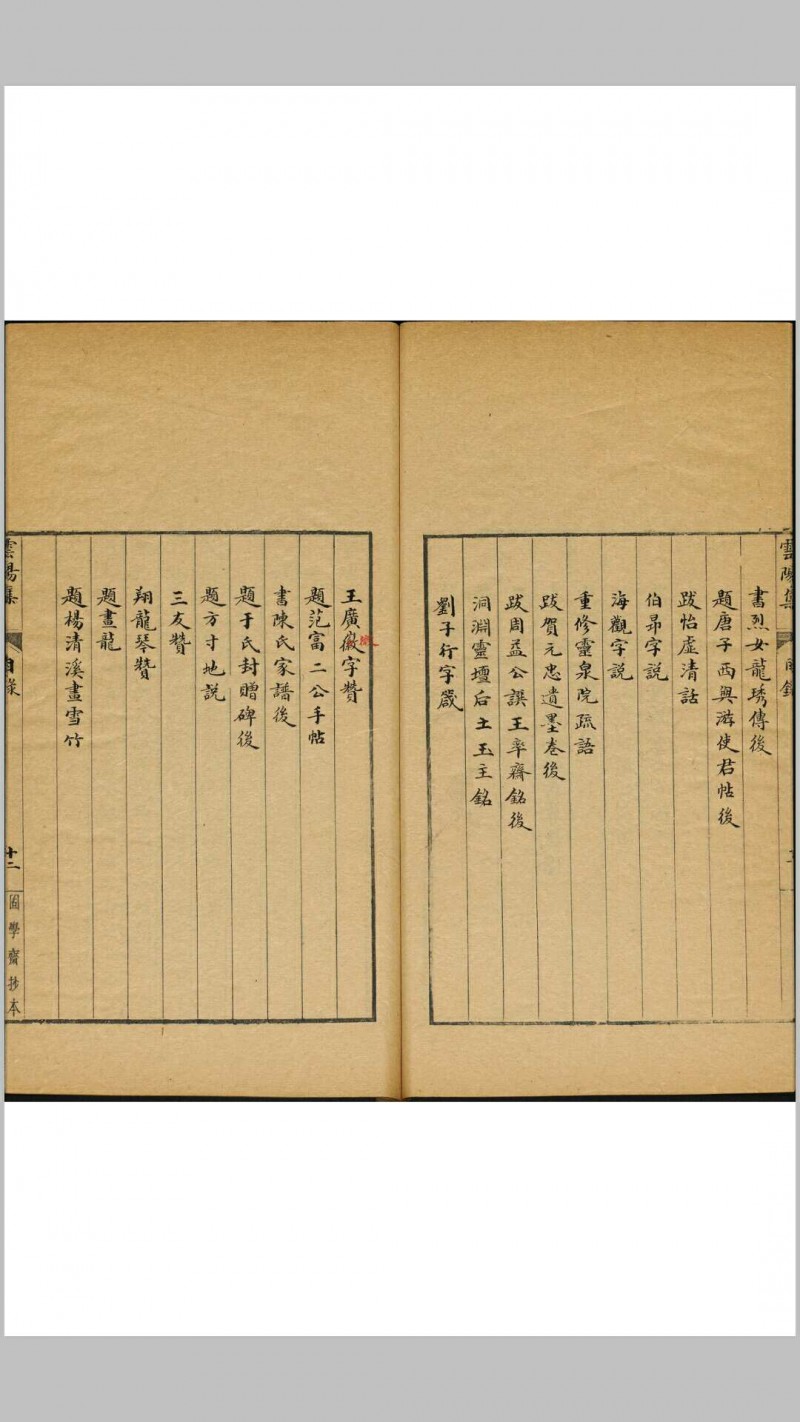 雲陽集
目錄
書烈女龍琇傳後
題唐子西與游使君帖後
跋怡虛清話
伯昴字説
海觀字説
重修靈泉院疏語
跋賀元忠遺墨卷後
跋周益公譔王率齋銘後
洞淵靈壇后土玉主銘
劉子行字箴
王廣徽字贊
題范富二公手帖
書陳氏家譜後
題于氏封贈碑後
題方寸地説
三友贊
翔龍琴贊
題畫龍
題楊清溪畫雪竹
雲陽集
目錄
十二
困學齋抄本